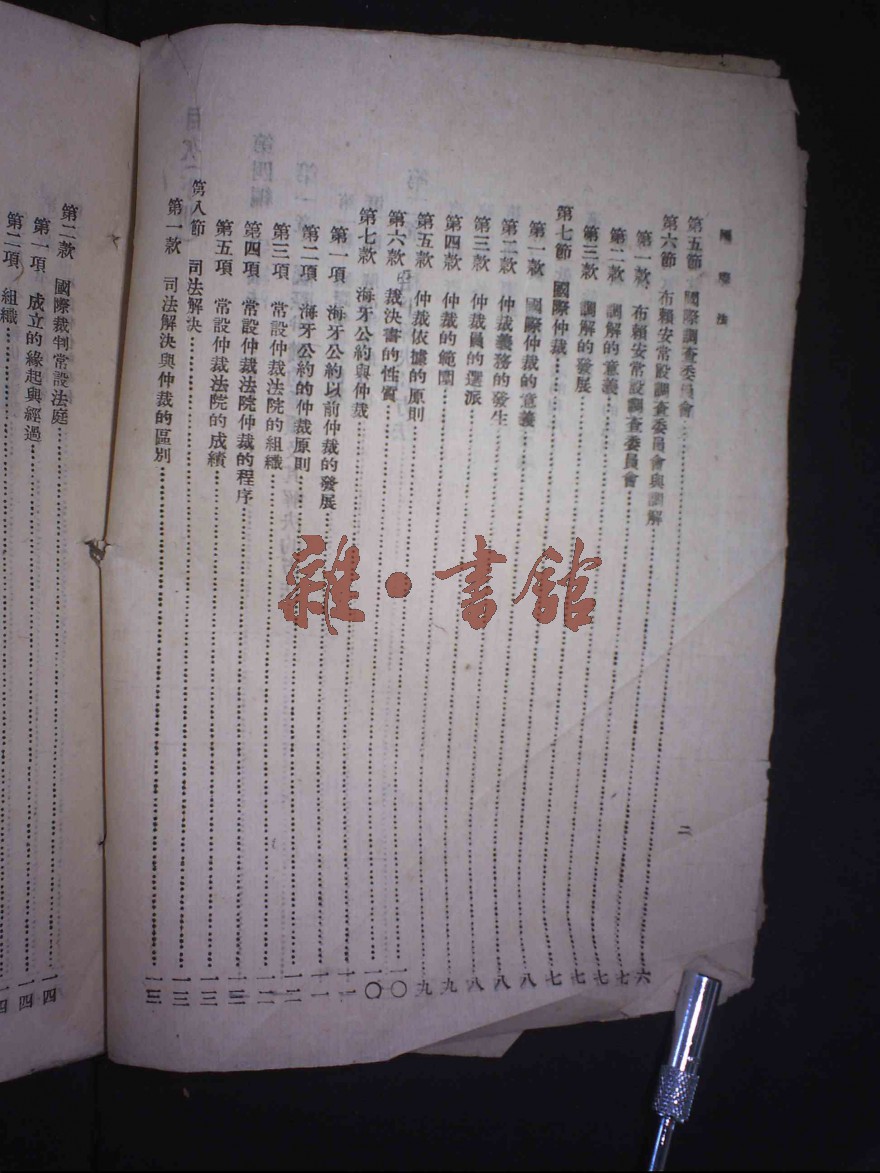 國際法
二
第五節 國際調查委員會……六
第六節 布賴安常設調查委員會與調解……七
第一款 布賴安常設調查委員會……七
第二款 調解的意義……七
第三款 調解的發展……七
第七節 國際仲裁……八
第一款 國際仲裁的意義……八
第二款 仲裁義務的發生……八
第三款 仲裁員的選派……九
第四款 仲裁的範圍……九
第五款 仲裁依據的原則……一〇
第六款 裁決書的性質……一〇
第七款 海牙公約與仲裁……一一
第一項 海牙公約以前仲裁的發展……一一
第二項 海牙公約的仲裁原則……一二
第三項 常設仲裁法院的組織……一二
第四項 常設仲裁法院仲裁的程序……一三
第五項 常設仲裁法院的成績……一三
第八節 司法解決……一三
第一款 司法解決與仲裁的區別……一三
第二款 國際裁判常設法庭……一四
第一項 成立的緣起與經過……一四
第二項 組織……一四
雜·書館